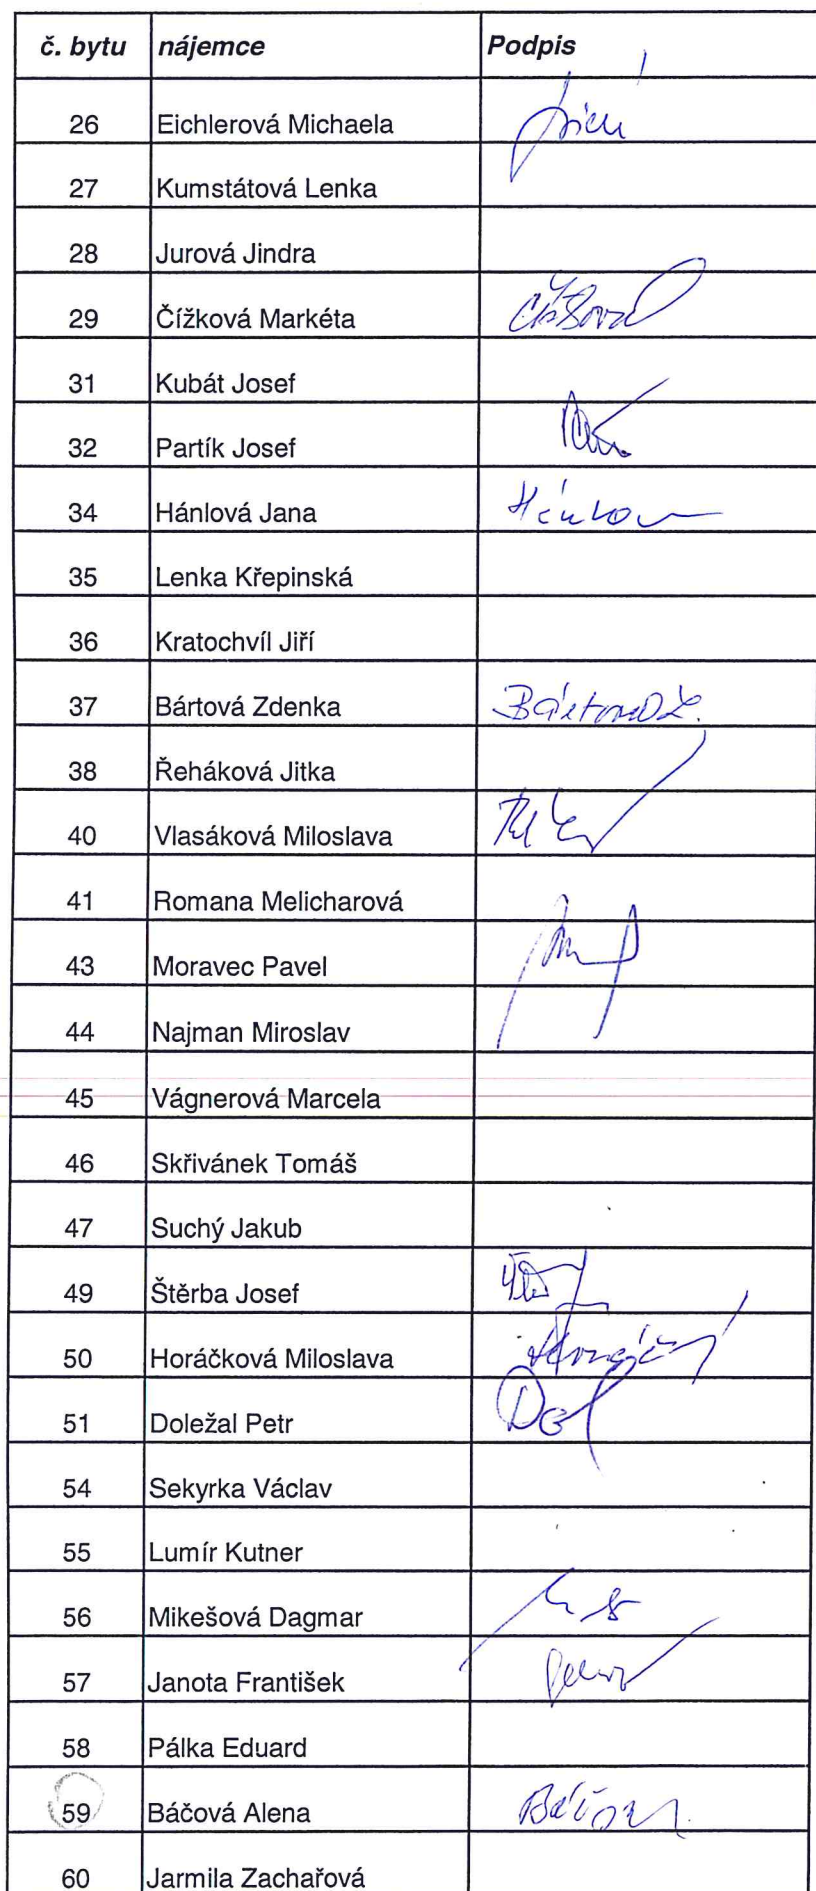 č. bytu nájemce Podpis
26 Eichlerová Michaela
27 Kumstátová Lenka
28 Jurová Jindra
29 Čížková Markéta
31 Kubát Josef
32 Partík Josef
34 Hánlová Jana
35 Lenka Křepinská
36 Kratochvíl Jiří
37 Bártová Zdenka
38 Řeháková Jitka
40 Vlasáková Miloslava
41 Romana Melicharová
43 Moravec Pavel
44 Najman Miroslav
45 Vágnerová Marcela
46 Skřivánek Tomáš
47 Suchý Jakub
49 Štěrba Josef
50 Horáčková Miloslava
51 Doležal Petr
54 Sekyrka Václav
55 Lumír Kutner
56 Mikešová Dagmar
57 Janota František
58 Pálka Eduard
59 Báčová Alena
60 Jarmila Zachařová